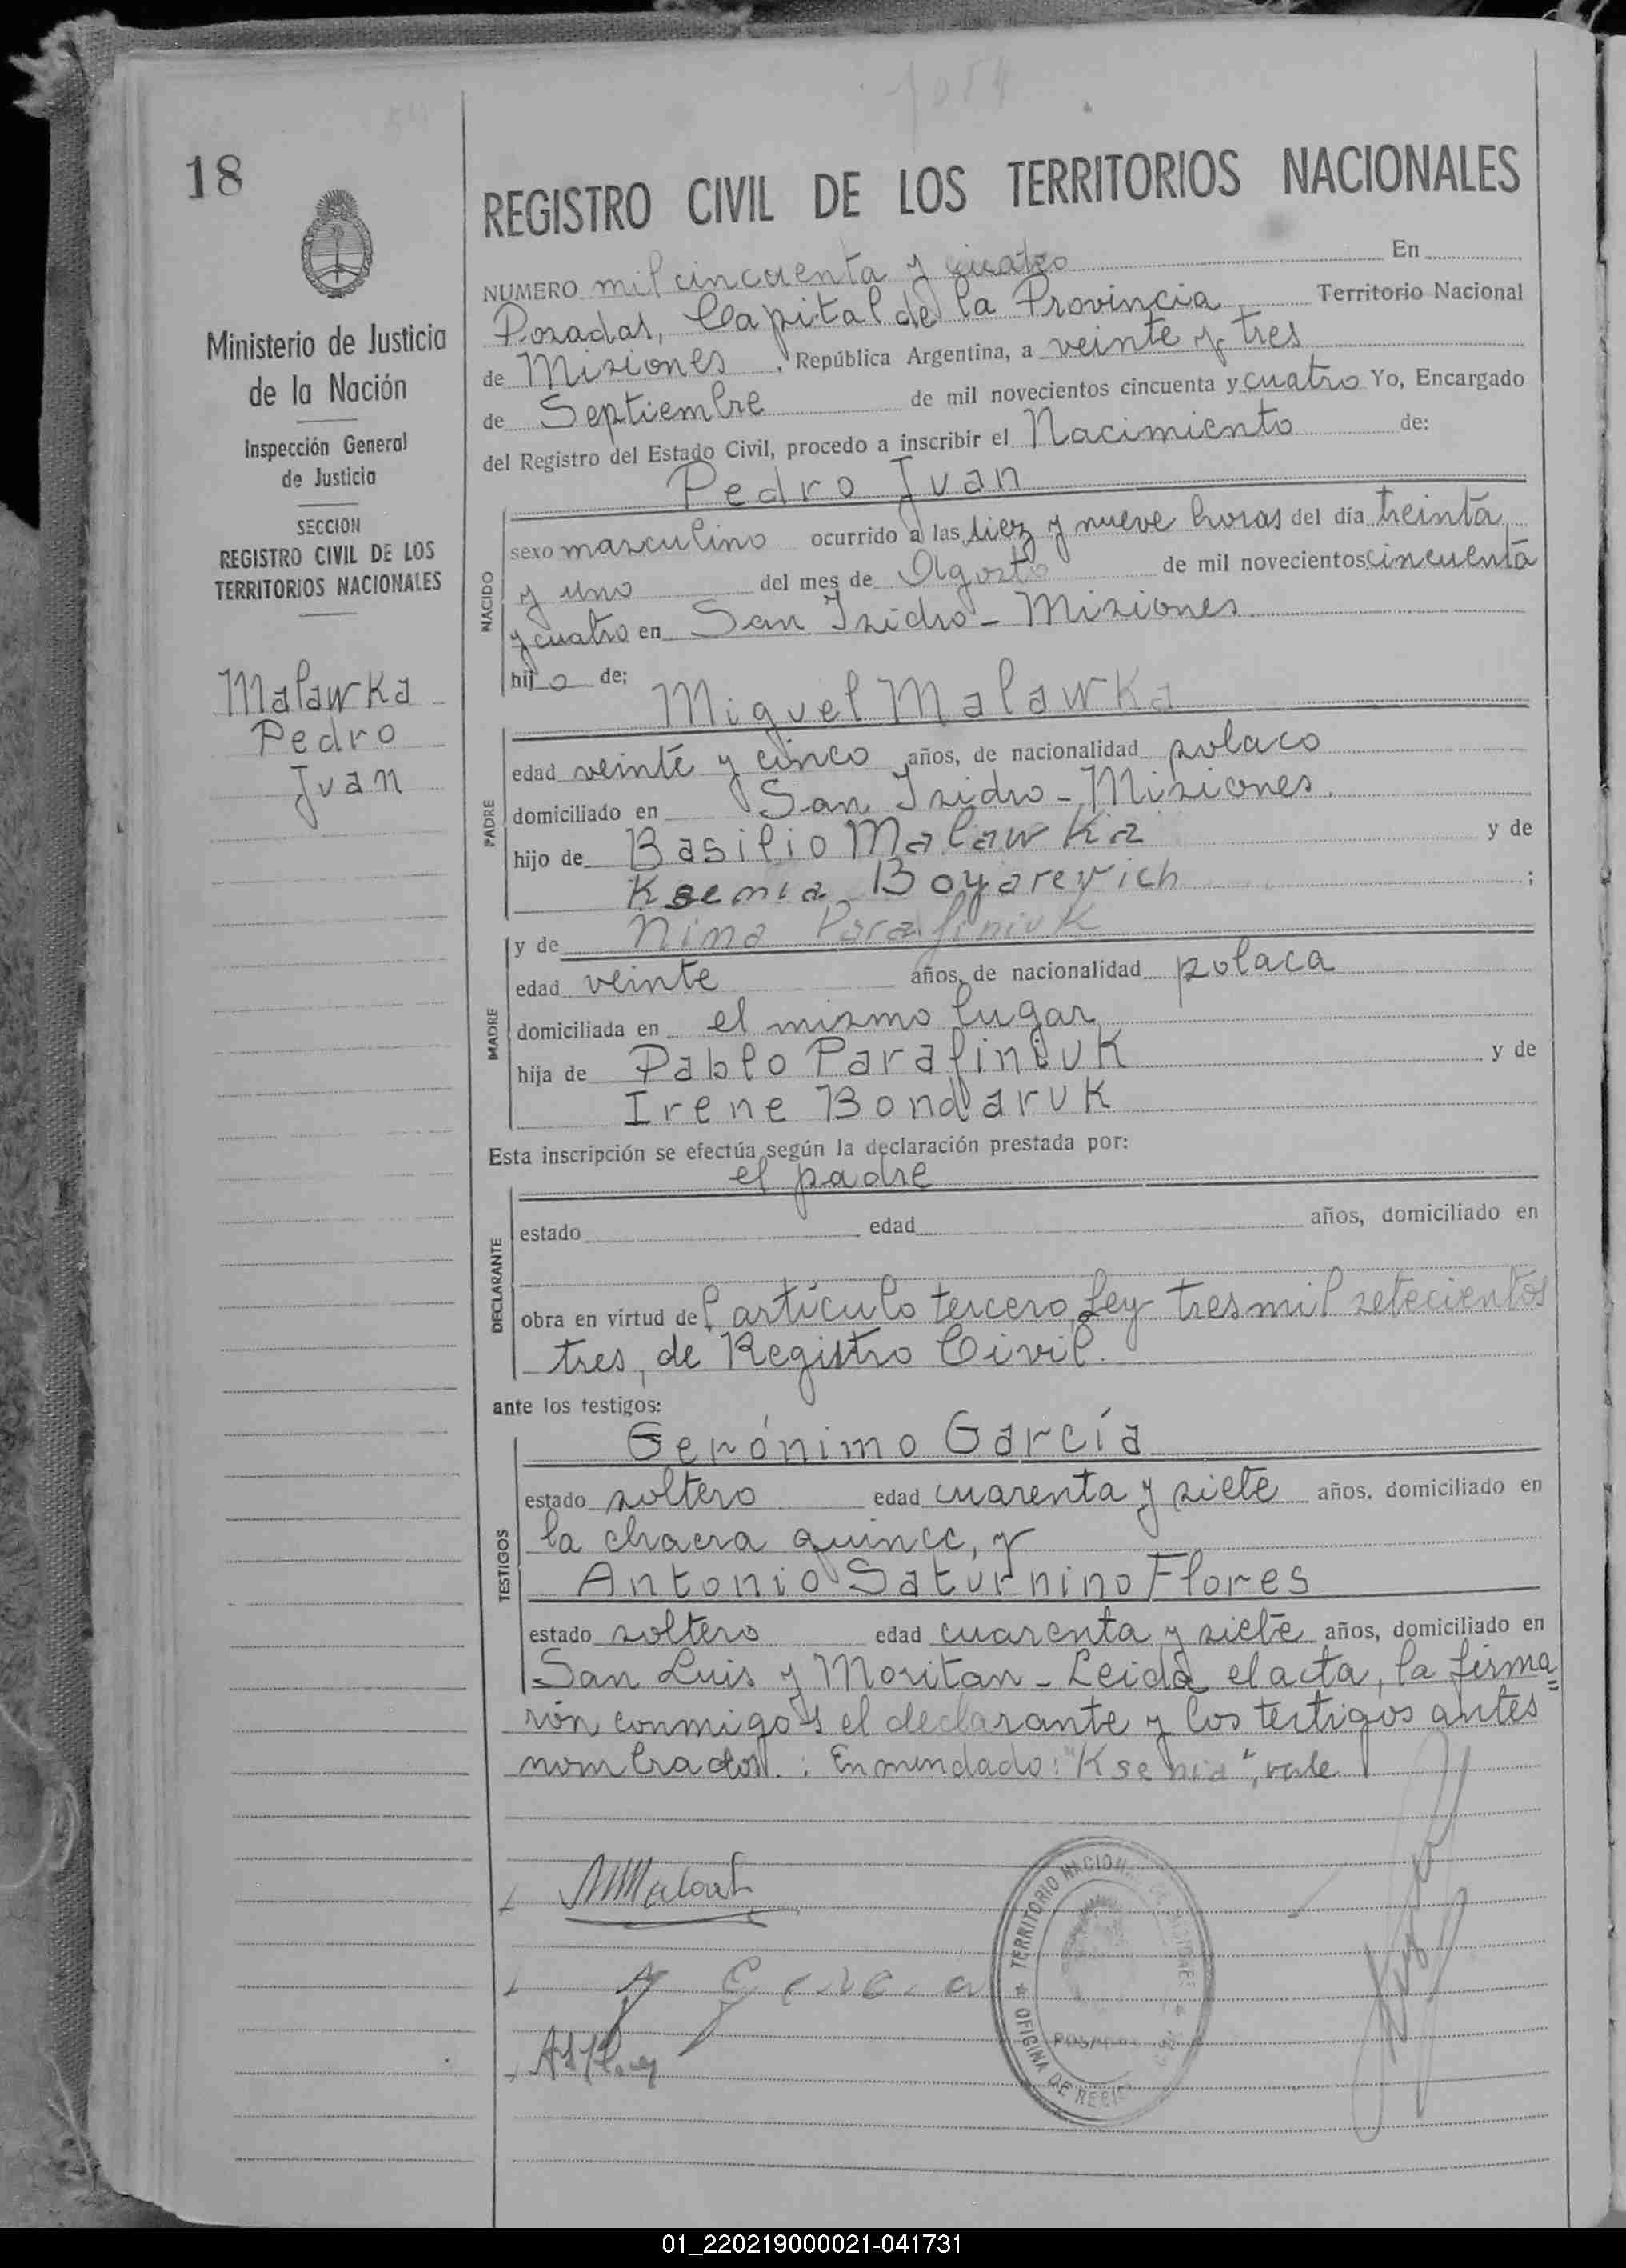 1054
18
REGISTRO CIVIL DE LOS TERRITORIOS NACIONALES
Ministerio de Justicia
de la Nación
Inspección General
de Justicia
SECCION
REGISTRO CIVIL DE LOS
TERRITORIOS NACIONALES
Malawka
Pedro
Juan
NUMERO mil cincuenta y cuatro En
Posadas, Capital de la Provincia Territorio Nacional
de Misiones, República Argentina, a veinte y tres
de Septiembre de mil novecientos cincuenta y cuatro Yo, Encargado
del Registro del Estado Civil, procedo a inscribir el Nacimiento de:
Pedro Juan
NACIDO
sexo masculino ocurrido a las diez y nueve horas del día treinta
y uno del mes de Agosto de mil novecientos cincuenta
y cuatro en San Isidro - Misiones
hijo de;
Miguel Malawka
PADRE
edad veinte y cinco años, de nacionalidad polaco
domiciliado en San Isidro - Misiones.
hijo de Basilio Malawka y de
Ksenia Boyarevich ;
y de Nina Parafiniuk
MADRE
edad veinte años, de nacionalidad polaca
domiciliada en el mismo lugar
hija de Pablo Parafiniuk y de
Irene Bondaruk
Esta inscripción se efectúa según la declaración prestada por:
el padre
DECLARANTE
estado edad años, domiciliado en
obra en virtud del artículo tercero, Ley tres mil setecientos
tres, de Registro Civil.
ante los testigos:
Gerónimo García
TESTIGOS
estado soltero edad cuarenta y siete años, domiciliado en
la chacra quince, y
Antonio Saturnino Flores
estado soltero edad cuarenta y siete años, domiciliado en
San Luis y Moritan - Leida el acta, la firma=
rón conmigo y el declarante y los testigos antes
nombrados.: Enmendado: "Ksenia", vale
TERRITORIO NACIONAL DE MISIONES
POSADAS
OFICINA DE REGIS
01_220219000021-041731